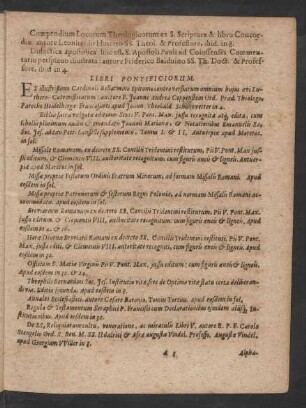 Compendium Locorum Theologicorum ex S. Scriptura & libro Concor-
diæ: autore Leonharto Huttero SS. Theol. & Professore, ibid. in 8.
Didactica apostolica hoc est, S. Apostoli Pauli ad Colossenses Commen-
tario perspicuo illustrata: autore Friderico Balduino SS. Th. Doct. & Profes-
sore, ibid. in 4.
LIBRI PONTIFICIORVM.
Cardinali Bellarmino Epitome controversiarum omnium hujus ævi Lu-
autore F. Joanne Andrea Coppenstein Ord. Præd. Theologo,
Parocho Heidelberga. Francofurti apud Joan. Theobald Schönvvetter in 4.
Biblia sacra vulgatæ editionis Sixti V. Pont. Max. jussu recognita atq; edita, cum
& Notationibus Emanuelis Sa:
Soc. Jesu, Tomis I. & II. Antverpiæ apud Moretos.
in fol.
Missale Romanum, ex decreto SS. Concilii Tridentini restitutum, Pii V. Pont. Max. jus-
su editum, & Clementis VIII. autoritate recognitum, cum figuris æneis & ligneis. Antuer-
piæ apud Moretos in fol.
Missæ propriæ Festorum Ordinis Fratrum Minorum, ad formam Missalis Romani.
Apud eosdem in fol.
Missæ propriæ Patronorum & festorum Regni Poloniæ, ad normam Missalis Romani ac-
commodatæ. Apud eosdem in fol.
Breviarium Romanum ex decreto SS. Concilii Tridentini restitutum, Pii V. Pont. Max.
jussu editum & Clementis VIII. autoritate recognitum: cum figuris æneis & ligneis. Apud
eosdem in 4. & 16.
Horæ Diurnæ Breviarii Romani ex decreto SS. Concilii Tridentini restituti, Pii V. Pont.
Max. jussu editi, & Clementis VIII. autoritate recogniti: cum figuris æneis & ligneis.
Apud eosdem in 32.
Officium B. Mariæ Virginis Pii V. Pont. Max. jussu editum: cum figuris æneis & ligneis.
Apud eosdem in & 24.
Theophili Bernardini Soc. Jesu. Institutio vitæ sive de Optimo vitæ statu certa delibe-
randi via. Editio secunda. apud eosdem in 8.
Annales Ecclesiastici. autore Cæsare Baronio. Tomus Tertius. Apud eosdem in fol.
Regula & Testamentum Seraphici P. Francisci cum Declarationibus ejusdem aliisq; In-
Apud eosdem in 32.
De SS. Reliquiarum cultu, veneratione, ac miraculis Libri V. autore R. P. F. Carolo
Stengelio Ord. S. Ben. M. SS. Udalrici & Afræ Augustæ Vindel. Professo. Augustæ Vindel.
apud Georgium Willer in 8.
Alpha-